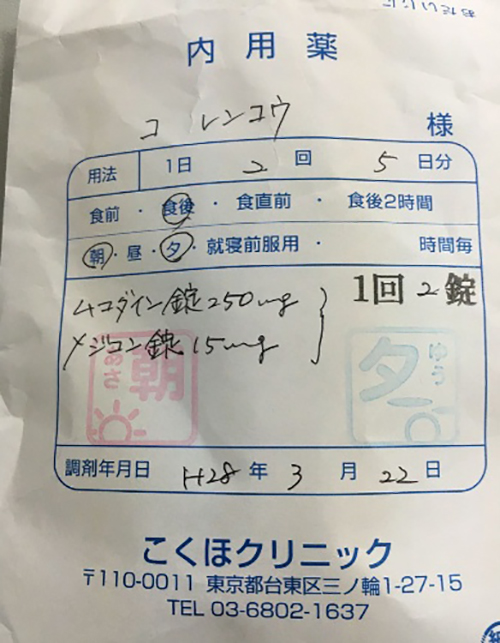 おだいじに
内用薬
コ レンコウ 様
用法 1日 2 回 5 日分
食前・食後・食直前・食後2時間
朝・昼・夕・就寝前服用・ 時間毎
ムコダイン錠250mg 1回2錠
メジコン錠15mg
あさ 朝 ゆう 夕
調剤年月日 H28年 3月 22日
こくほクリニック
〒110-0011 東京都台東区三ノ輪1-27-15
TEL 03-6802-1637